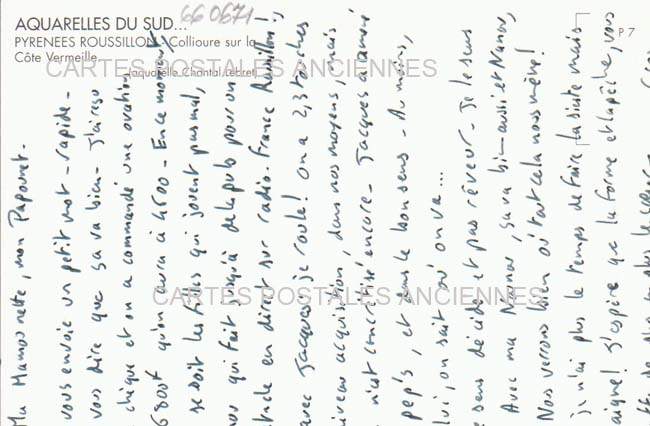 660671
AQUARELLES DU SUD...
PYRENEES ROUSSILLON - Collioure sur la
Côte Vermeille
(aquarelle Chantal Lebret)
P 7
CARTES POSTALES ANCIENNES
CARTES POSTALES ANCIENNES
Ma Mamounette, mon Papounet.
vous envoie un petit mot - rapide -
vous dire que sa va bien - J'ai reçu
chèque et on a commandé une ovation
6800F qu'on aura à 4500 - En ce moment
se doit les filles qui jouent pas mal,
qui fait jusqu'à de la pub pour un
en direct sur radio-France Roussillon!,
avec Jacques, je roule! On a 2, 3 touches
acquisition, dans nos moyens, mais
n'est concrétisé encore - Jacques a l'amour
pep's, et dans le bon sens - Au moins,
lui, on sait où on va...
sens décidé et pas rêveur - Je le sens
Avec ma Nanou, sa va bien aussi et Nanou,
Nous verrons bien où tout cela nous mène!
j'n'ai plus le temps de faire la sieste mais
J'espère que la forme et la pêche, vous
de plus en plus le